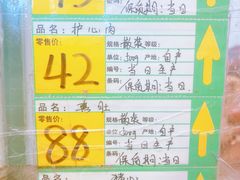 保质期:当日
品名:护心肉
零售价: 规格:散装 等级:
42 单位:500g 产地:自产
编号:当日生产
保质期:当日
品名: 肚
零售价: 规格:散装 等级:
88 单位:500g 产地:自产
编号:当日生产
保质期:当日
品名:猪心